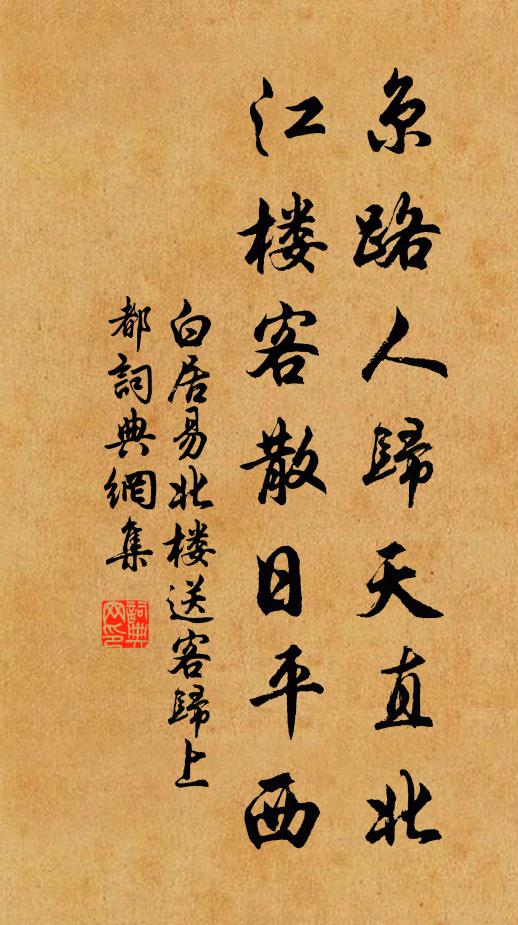 京路人歸天直北
江楼客散日平西
白居易北楼送客歸上
都詞典網集
詞典
网印